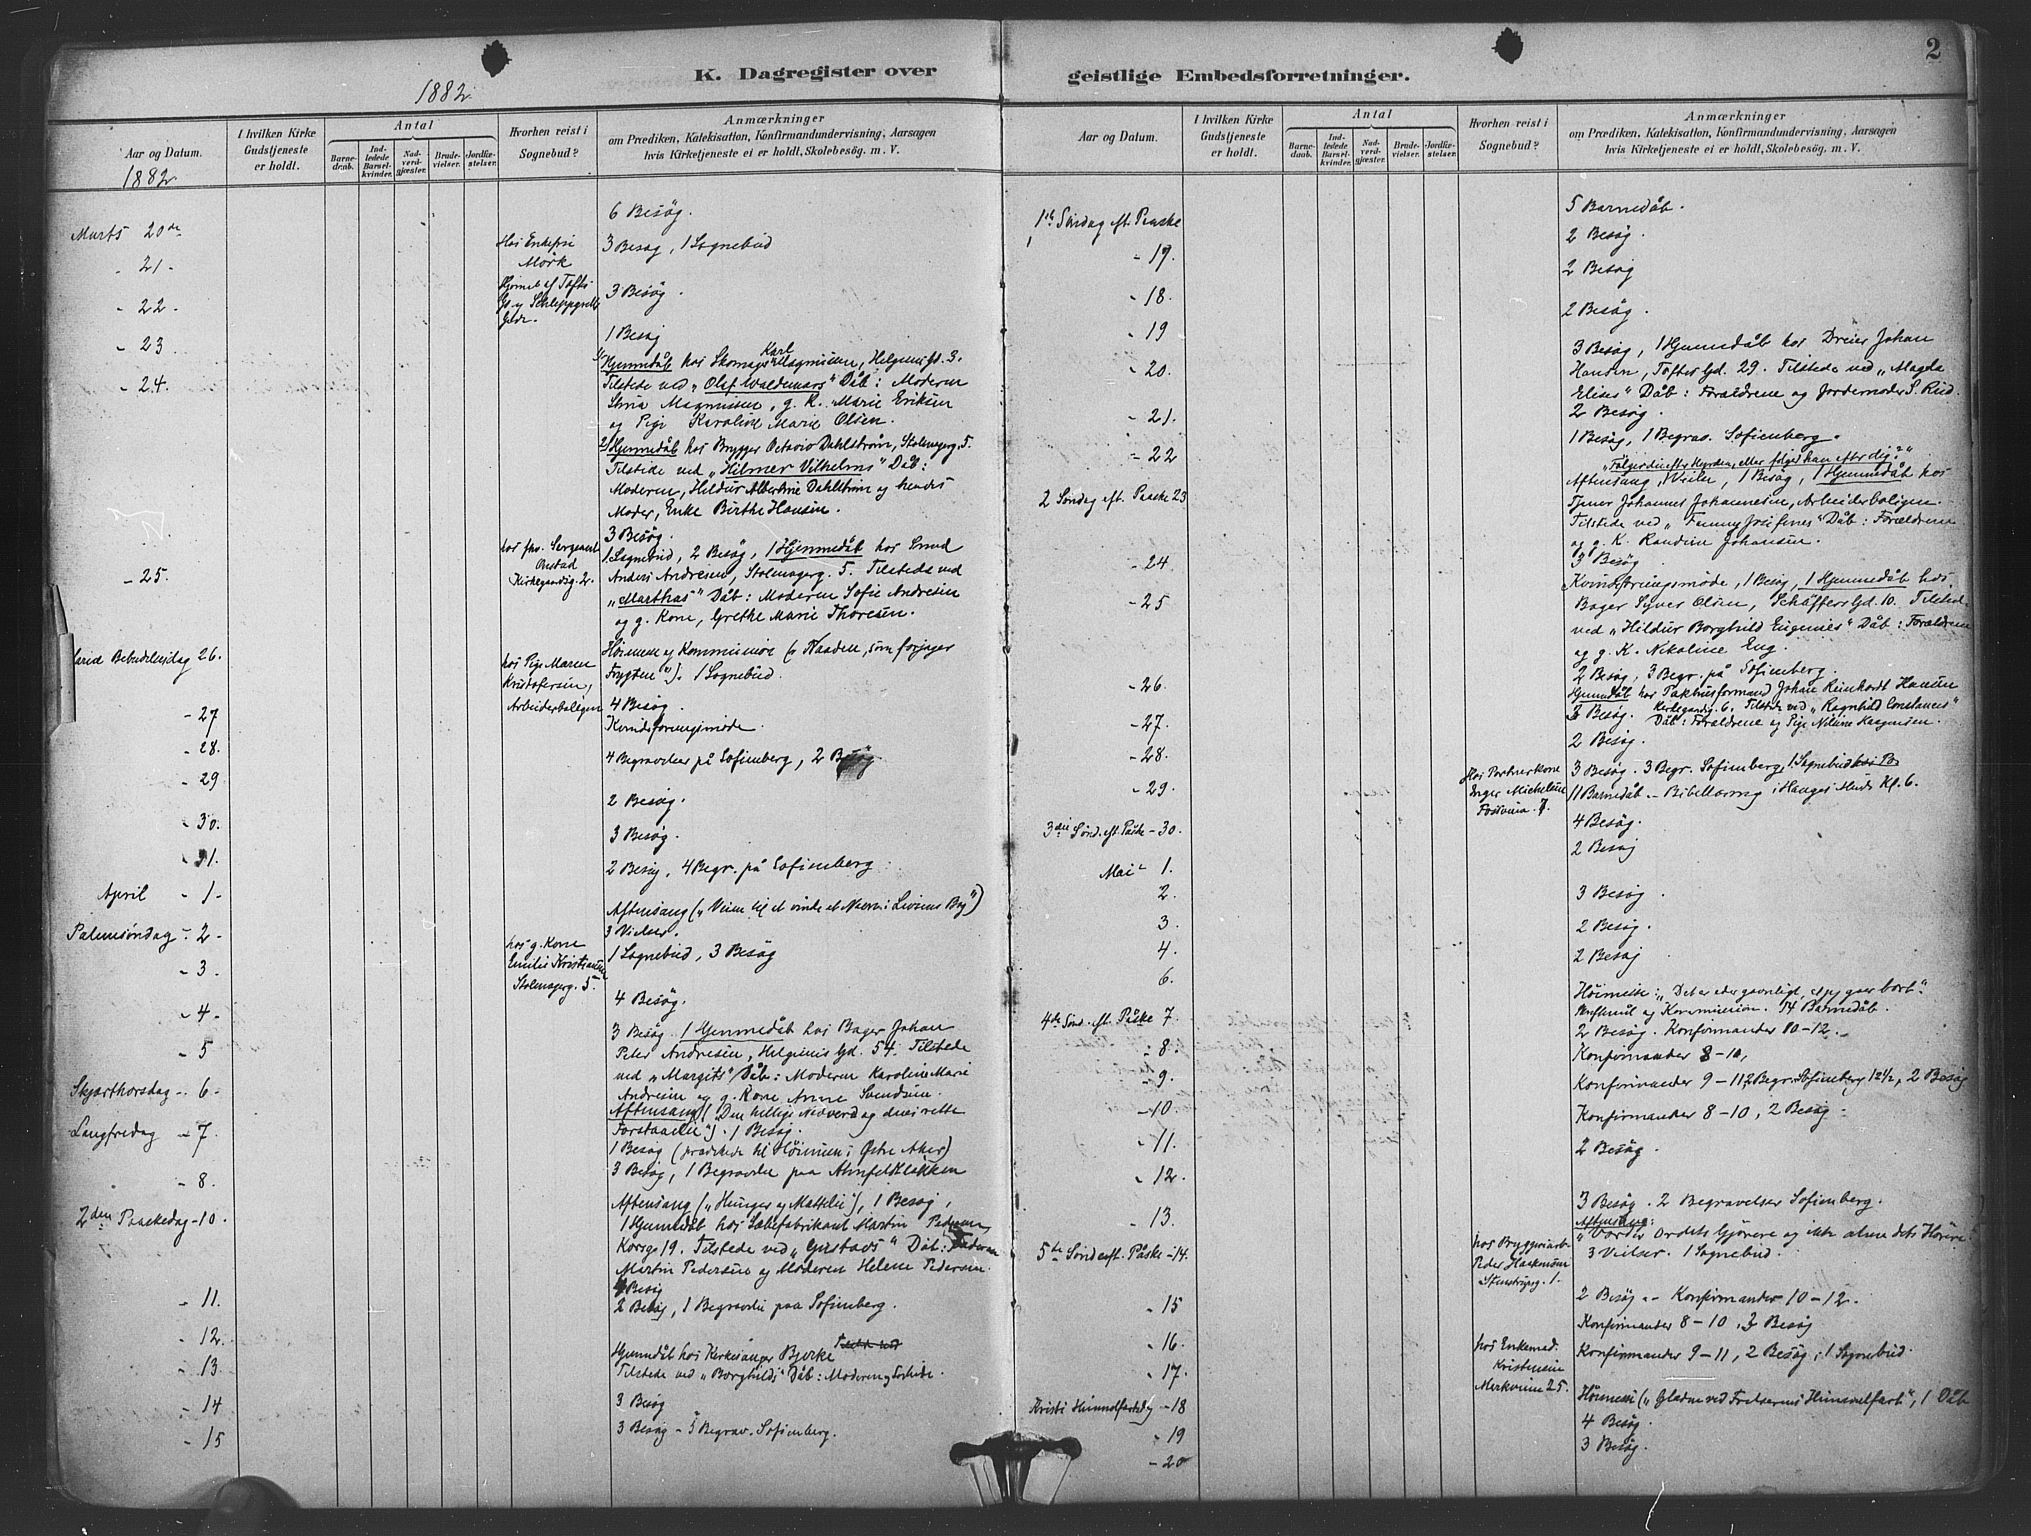 K. Dagregister over
1882
Aar og Datum.
1882
I hvilken Kirke
Gudstjeneste
er holdt.
Antal
Barne-
daab.
Ind-
ledede
Barsel-
kvinder.
Nad-
verd-
gjæster.
Brude-
vielser.
Jordfæ-
stelser.
Hvorhen reist i
Sognebud?
Anmærkninger
om Prædiken, Katekisation, Konfirmandundervisning, Aarsagen
hvis Kirketjeneste ei er holdt, Skolebesøg. m. V.
6 Besög.
Marts 20de
hos Enkefru
Mörk
3 Besög, 1 Sognebud
- 21 -
- 22 -
3 Besög.
- 23
1 Besög
- 24.
1) Hjemmedåb hos Skomager Karl Magnussen, Helgensgd. 3.
Tilstede ved „Olaf Waldemars" Dåb: Moderen
Magnussen, g. K. Marie Eriksen
og Pige Karoline Marie Olsen.
2) Hjemmedåb hos Brygger Octavio Dahlström, Stolmagerg. 5.
Tilstede ved „Hilmer Vilhelms" Dåb:
Moderen, Hildur Albertine Dahlström og hendes
Moder, Enke Birthe Hansen.
3 Besög.
hos fhv. Sergeant
Onstad
Kirkegaardsg. 2.
1 Sognebud, 2 Besög, 1 Hjemmedåb hos Smed
- 25.
Anders Andresen, Stolmagerg. 5. Tilstede ved
„Marthas" Dåb: Moderen Sofie Andresen
og g. Kone, Grethe Marie Thoresen.
Maria Bebudelsesdag 26.
hos Pige Maren
Kristofersen,
Arbeiderboligen
Höimesse og Kommunion („Naaden, som forjager
Frygten"). 1 Sognebud.
- 27
4 Besög.
Kvindeforeningsmöde.
- 28.
4 Begravelser på Sofienberg, 2 Besög
- 29
2 Besög.
- 30.
3 Besög.
- 31.
2 Besög, 4 Begr. på Sofienberg.
April - 1.
Aftensang („Veien til at vinde et Navn i Livsens Bog")
Palmesöndag - 2 -
3 Vielser.
hos g. Kone
Emilie Kristiansen
Stolmagerg. 5.
1 Sognebud, 3 Besög
- 3.
4 Besög.
- 4.
3 Besög. 1 Hjemmedåb hos Bager Johan
- 5
Peter Andresen, Helgesens Gd. 54. Tilstede
ved „Margits" Dåb: Moderen Karoline Marie
Skjærthorsdag - 6.
Andresen og g. Kone Anne Svendsen.
Aftensang („Den hellige Nadverd og dens rette
Langfredag - 7.
Forstaaelse"). 1 Besög.
1 Besög (prædikede til Höimessen i Östre Aker)
- 8.
3 Besög, 1 Begravelse paa Ahnfeldtløkken
2den Paaskedag - 10.
Aftensang („Hunger og Mættelse"), 1 Besög,
1 Hjemmedåb hos Sæbefabrikant Martin Pedersen,
Korsg. 19. Tilstede ved „Gustavs" Dåb: Faderen
Martin Pedersen og Moderen Helene Pedersen.
4 Besög
- 11.
2 Besög, 1 Begravelse paa Sofienberg.
- 12.
- 13
Hjemmedåb hos Kirkesanger Bjerke
Tilstede ved „Borghilds" Dåb: Moderen og
- 14
3 Besög
- 15
3 Besög - 5 Begrav. Sofienberg.
2
geistlige Embedsforretninger.
Aar og Datum.
I hvilken Kirke
Gudstjeneste
er holdt.
Antal
Barne-
daab.
Ind-
ledede
Barsel-
kvinder.
Nad-
verd-
gjæster.
Brude-
vielser.
Jordfæ-
stelser.
Hvorhen reist i
Sognebud?
Anmærkninger
om Prædiken, Katekisation, Konfirmandundervisning, Aarsagen
hvis Kirketjeneste ei er holdt, Skolebesög. m. V.
1ste Söndag eft. Paaske
5 Barnedåb.
- 17.
2 Besög.
2 Besög
- 18.
2 Besög.
- 19
- 20.
3 Besög, 1 Hjemmedåb hos Dreier Johan
Hansen, Toftes Gd. 29. Tilstede ved „Magda
Elises" Dåb: Forældrene og Jordemoder S. Rud.
- 21.
2 Besög.
- 22
1 Besög, 1 Begrav. Sofienberg.
2 Söndag eft. Paaske 23
„Fölger du efter Hyrden, eller fölger han efter dig?"
Aftensang, Vielser, 1 Besög, 1 Hjemmedåb hos
Tjener Johannes Johannesen, Arbeiderboligen.
Tilstede ved „Fanny Josefines" Dåb: Forældrene
og g. K. Randine Johansen.
- 24
3 Besög
- 25
Kvindeforeningsmöde, 1 Besög, 1 Hjemmedåb hos
Bager Syver Olsen, Schäffers Gd. 10. Tilstede
ved „Hildur Borghild Eugenies" Dåb: Forældrene
og g. K. Nikoline Eng.
- 26.
2 Besög, 3 Begr. på Sofienberg.
Hjemmedåb hos Pakhusformand Johan Reinhardt Hansen
- 27.
3 Besög.
Kirkegaardsg. 6. Tilstede ved „Ragnhild Constances"
Dåb: Forældrene og Pige Nilsine Rasmussen.
- 28.
2 Besög.
- 29.
hos Portnerkone
Inger Michelsen
3 Besög. 3 Begr. Sofienberg, 1 Sognebud
3die Sönd. eft. Påske - 30.
11 Barnedåb - Bibellæsning i Hauges Minde Kl. 6.
Mai - 1.
4 Besög.
2.
2 Besög
3.
3 Besög
4.
2 Besög.
6.
2 Besög
4de Sönd. eft. Påske 7.
Höimesse: „Det er eder gavnligt, at jeg gaar bort".
Skriftemål og Kommunion. 14 Barnedåb.
- 8.
2 Besög. Konfirmander 10-12.
- 9.
Konfirmander 8-10,
- 10
Konfirmander 9-11, 2 Begr. Sofienberg 12½, 2 Besög
- 11.
Konfirmander 8-10, 2 Besög.
- 12.
2 Besög.
- 13.
3 Besög. 2 Begravelser Sofienberg.
5te Sönd. eft. Påske - 14.
hos Bryggeriarb.
Peder Haakensen
Stenstrupg. 1.
Aftensang:
„Vorder Ordets Gjörere og ikke alene dets Hörere"
3 Vielser. 1 Sognebud.
- 15
2 Besög - Konfirmander 10-12.
- 16.
Konfirmander 8-10, 3 Besög
- 17.
hos Enkemad.
Kristensen
Markveien 25.
Konfirmander 9-11, 2 Besög, 1 Sognebud.
Kristi Himmelfartsdag - 18
Höimesse („Glæden ved Frelserens Himmelfart", 1 Dåb
- 19
4 Besög.
- 20
3 Besög.